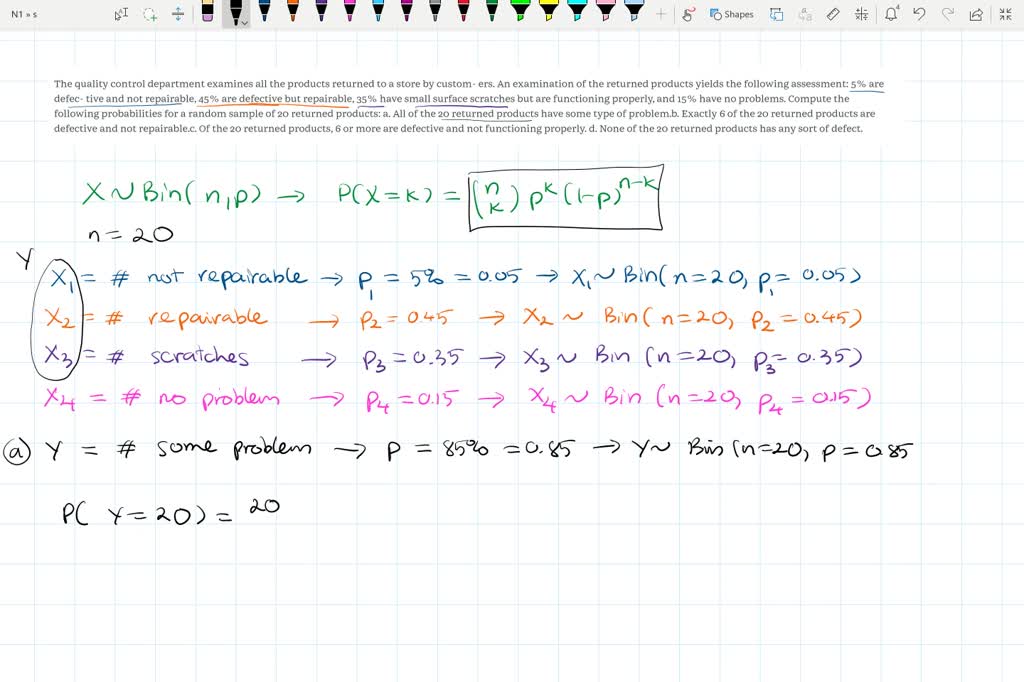 N1 » s
Shapes
4
The quality control department examines all the products returned to a store by custom- ers. An examination of the returned products yields the following assessment: 5% are
defec- tive and not repairable, 45% are defective but repairable, 35% have small surface scratches but are functioning properly, and 15% have no problems. Compute the
following probabilities for a random sample of 20 returned products: a. All of the 20 returned products have some type of problem.b. Exactly 6 of the 20 returned products are
defective and not repairable.c. Of the 20 returned products, 6 or more are defective and not functioning properly. d. None of the 20 returned products has any sort of defect.
X ~ Bin(n,p) → P(X=k) = (n k) p^k (1-p)^n-k
n = 20
Y
X1 = # not repairable → P1 = 5% = 0.05 → X1 ~ Bin(n=20, P1 = 0.05)
X2 = # repairable → P2 = 0.45 → X2 ~ Bin(n=20, P2 = 0.45)
X3 = # scratches → P3 = 0.35 → X3 ~ Bin (n=20, P3 = 0.35)
X4 = # no problem → P4 = 0.15 → X4 ~ Bin (n=20, P4 = 0.15)
(a) Y = # some problem → P = 85% = 0.85 → Y~ Bin (n=20, p = 0.85
P( Y=20) = 20